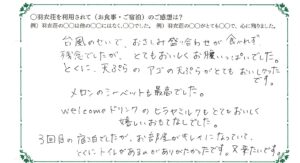 ◎羽衣荘を利用されて（お食事・ご宿泊）のご感想は？
例）羽衣荘の○○は他の○○にはなく、○○でした。 例）羽衣荘の○○がとても○○で、心に残りました。
台風のせいで、おさしみ盛り合わせが食べれず
残念でしたが、とてもおいしくお腹いっぱいでした。
とくに、天ぷらのアゴの天ぷらがとてもおいしかった
です。
メロンのシーベットも最高でした。
welcomeドリンクのヒラヤミルクもとてもおいしく
嬉しいおもてなしでした。
3回目の宿泊でしたが、お部屋がキレイになっていて、
とくにトイレがあるのがありがたかったです。又来たいです。